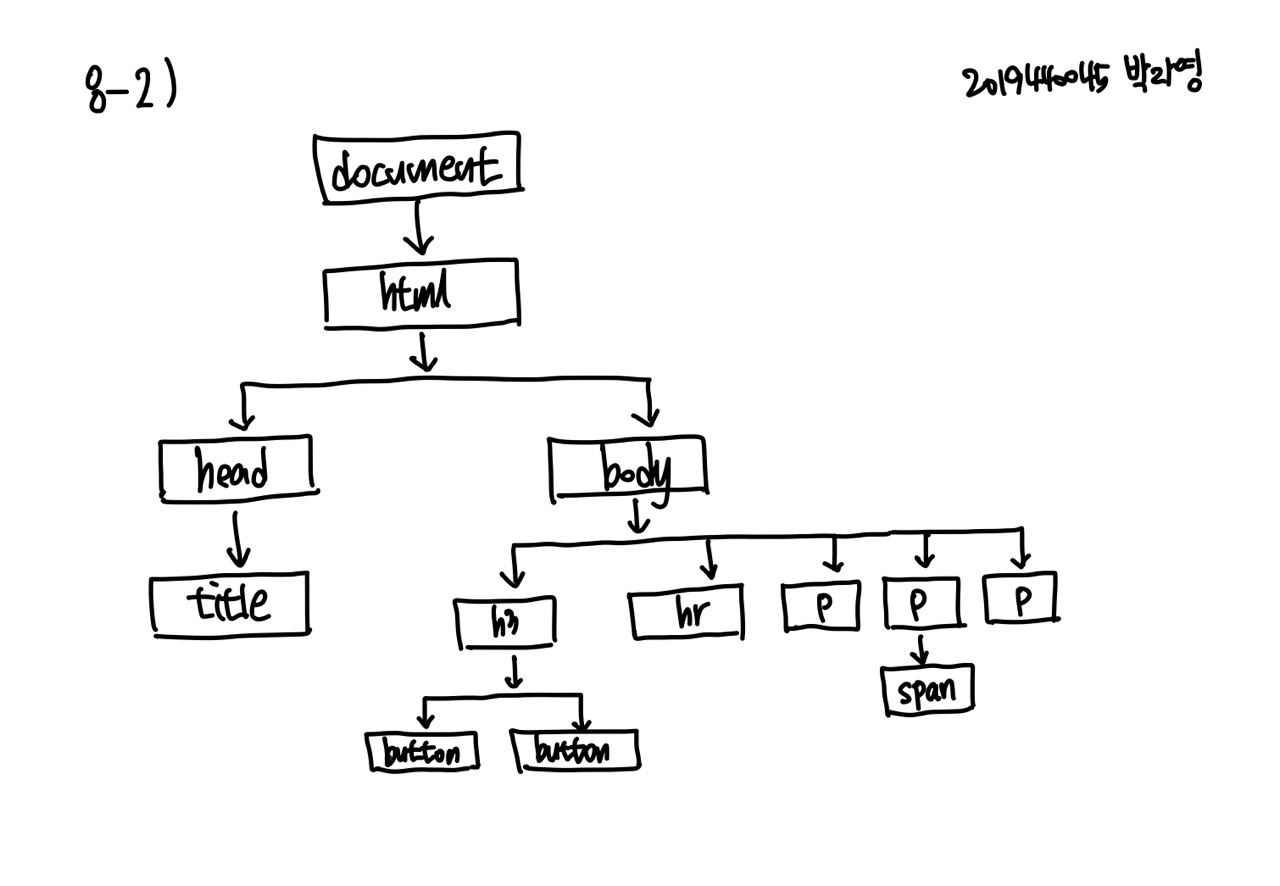 8-2)
2019440045 박라영
document
html
head
body
title
h3
hr
p
p
p
span
button
button